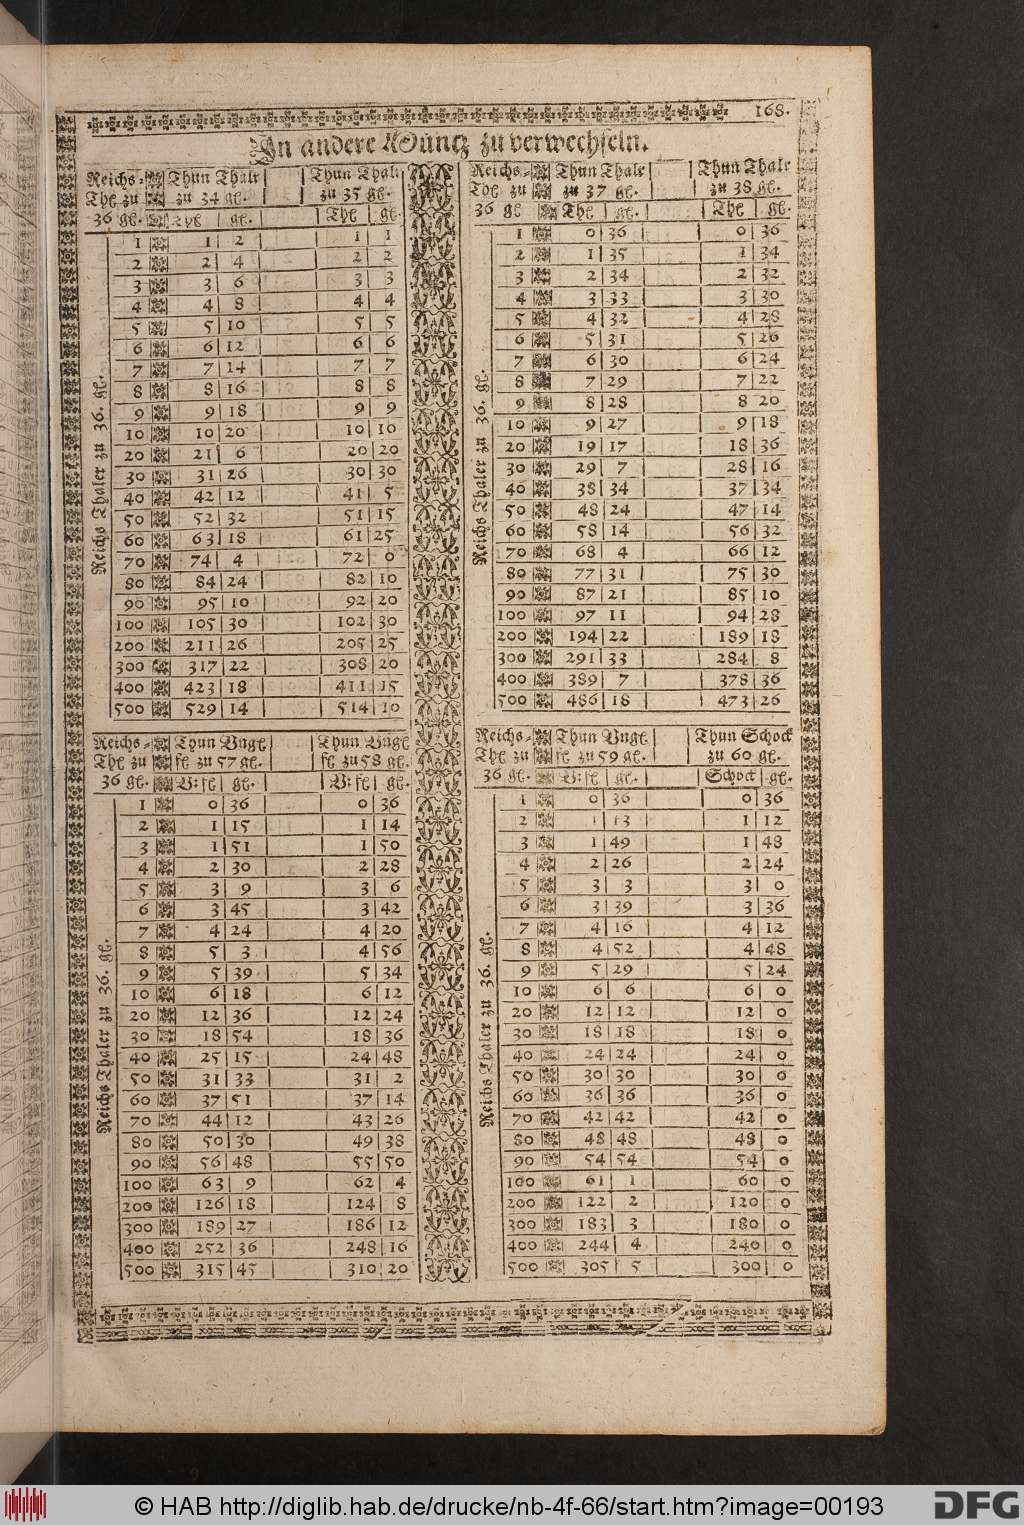 168.
In andere Müntz zu verwechseln.
Reichs- Thun Thalr Thun Thalr
Thl zu zu 34 gl. zu 35 gl.
36 gl. Thl gl. Thl gl.
Reichs Thaler zu 36. gl.
1 1 2 1 1
2 2 4 2 2
3 3 6 3 3
4 4 8 4 4
5 5 10 5 5
6 6 12 6 6
7 7 14 7 7
8 8 16 8 8
9 9 18 9 9
10 10 20 10 10
20 21 6 20 20
30 31 26 30 30
40 42 12 41 5
50 52 32 51 15
60 63 18 61 25
70 74 4 72 0
80 84 24 82 10
90 95 10 92 20
100 105 30 102 30
200 211 26 205 25
300 317 22 308 20
400 423 18 411 15
500 529 14 514 10
Reichs- Thun Thalr Thun Thalr
Thl zu zu 37 gl. zu 38 gl.
36 gl Thl gl. Thl gl.
Reichs Thaler zu 36. gl.
1 0 36 0 36
2 1 35 1 34
3 2 34 2 32
4 3 33 3 30
5 4 32 4 28
6 5 31 5 26
7 6 30 6 24
8 7 29 7 22
9 8 28 8 20
10 9 27 9 18
20 19 17 18 36
30 29 7 28 16
40 38 34 37 34
50 48 24 47 14
60 58 14 56 32
70 68 4 66 12
80 77 31 75 30
90 87 21 85 10
100 97 11 94 28
200 194 22 189 18
300 291 33 284 8
400 389 7 378 36
500 486 18 473 26
Reichs- Thun Vngl Thun Vngl
Thl zu fl zu 57 gl. fl zu 58 gl.
36 gl. V: fl gl. V: fl gl.
Reichs Thaler zu 36. gl.
1 0 36 0 36
2 1 15 1 14
3 1 51 1 50
4 2 30 2 28
5 3 9 3 6
6 3 45 3 42
7 4 24 4 20
8 5 3 4 56
9 5 39 5 34
10 6 18 6 12
20 12 36 12 24
30 18 54 18 36
40 25 15 24 48
50 31 33 31 2
60 37 51 37 14
70 44 12 43 26
80 50 30 49 38
90 56 48 55 50
100 63 9 62 4
200 126 18 124 8
300 189 27 186 12
400 252 36 248 16
500 315 45 310 20
Reichs- Thun Vngl Thun Schock
Thl zu fl zu 59 gl. zu 60 gl.
36 gl. V: fl gl. Schock gl.
Reichs Thaler zu 36. gl.
1 0 36 0 36
2 1 13 1 12
3 1 49 1 48
4 2 26 2 24
5 3 3 3 0
6 3 39 3 36
7 4 16 4 12
8 4 52 4 48
9 5 29 5 24
10 6 6 6 0
20 12 12 12 0
30 18 18 18 0
40 24 24 24 0
50 30 30 30 0
60 36 36 36 0
70 42 42 42 0
80 48 48 48 0
90 54 54 54 0
100 61 1 60 0
200 122 2 120 0
300 183 3 180 0
400 244 4 240 0
500 305 5 300 0
© HAB http://diglib.hab.de/drucke/nb-4f-66/start.htm?image=00193
DFG